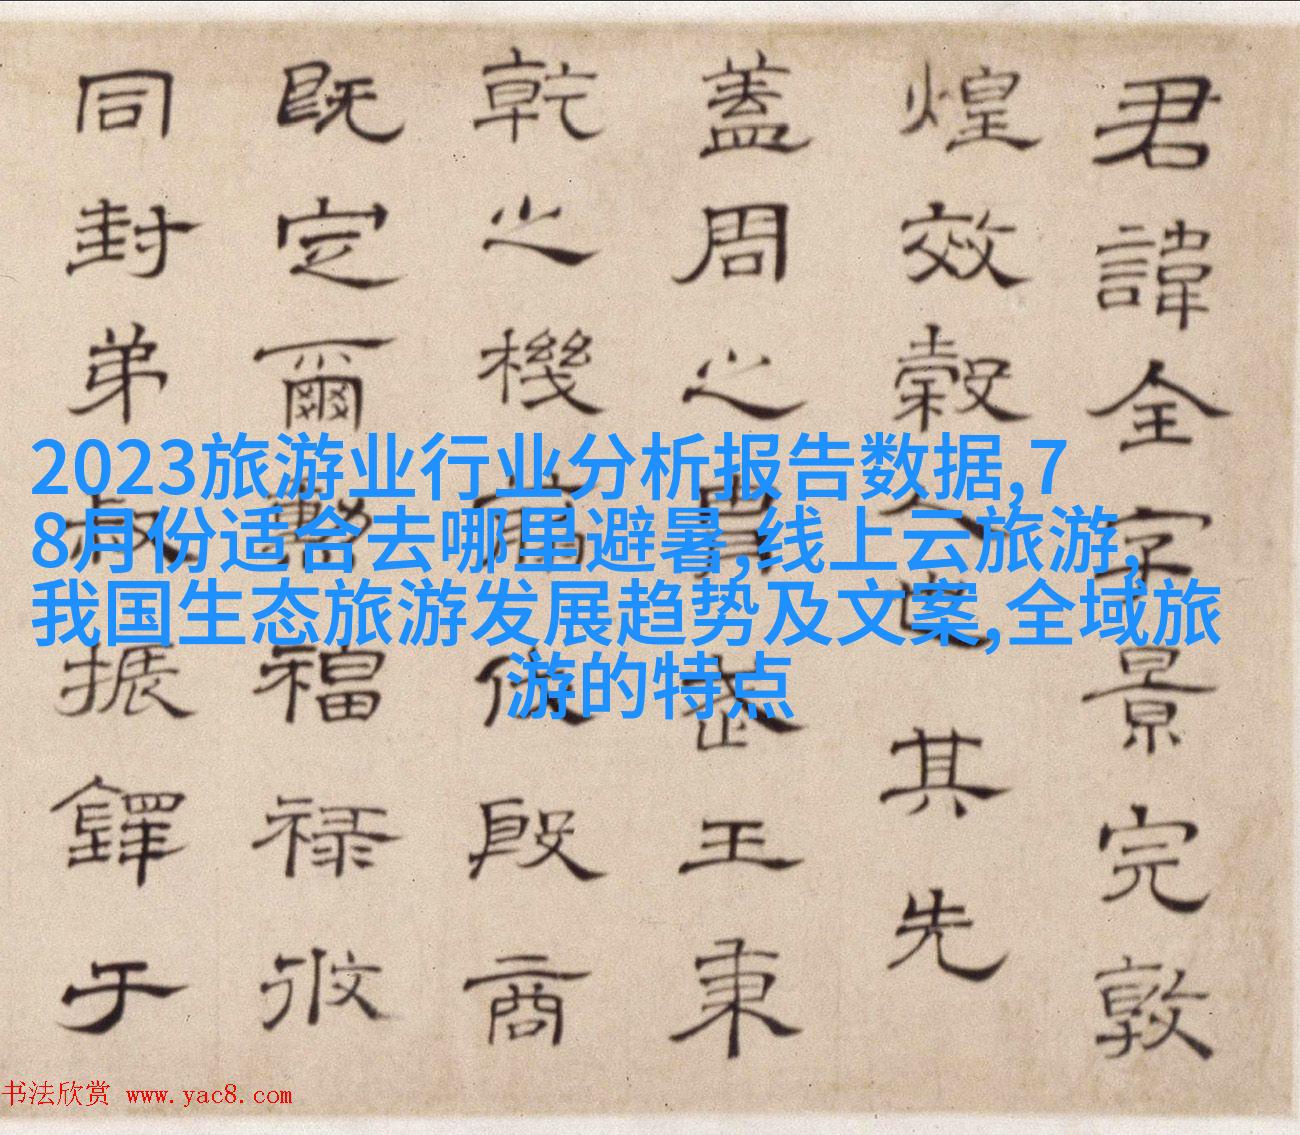 君諱全字景完敦
煌效穀人也其先
蓋周之武王秉
乾之機伐殷商
既定爾福禄攸
同封弟叔振鐸于
2023旅游业行业分析报告数据,7
8月份适合去哪里避暑,线上云旅游,
我国生态旅游发展趋势及文案,全域旅
游的特点
书法欣赏 www.yac8.com